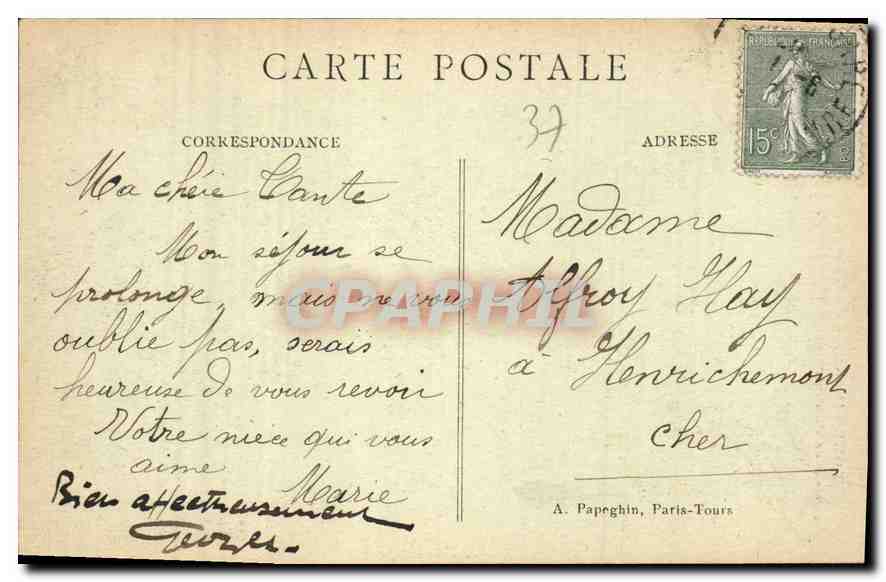 CARTE POSTALE
37
CORRESPONDANCE
ADRESSE
REPUBLIQUE FRANÇAISE
15c
Ma chérie Tante
Mon séjour se
prolonge, mais ne vous
oublie pas, serais
heureuse de vous revoir
Votre nièce qui vous
aime
Marie
Bien affectueusement
Georges.
Madame
Alfroy Hay
à Henrichemont
Cher
A. Papeghin, Paris-Tours
CPAPHIL